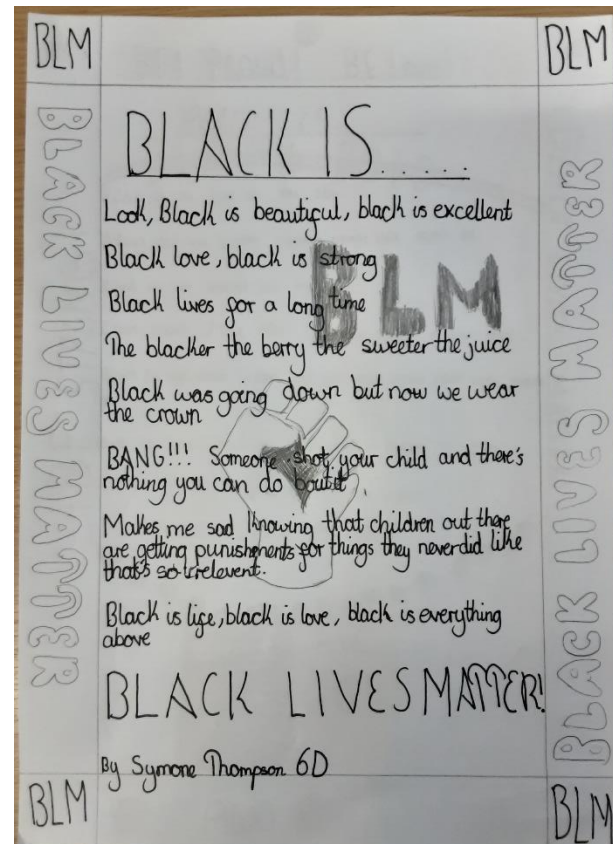 BLM
BLM
BLACK IS.....
Look, Black is beautiful, black is excellent
Black love, black is strong
Black lives for a long time
The blacker the berry the sweeter the juice
Black was going down but now we wear
the crown
BANG!!! Someone shot your child and there's
nothing you can do boutit
Makes me sad knowing that children out there
are getting punishments for things they never did like
that's so irrelevent.
Black is life, black is love, black is everything
above
BLACK LIVES MATTER!
By Symone Thompson 6D
BLM
BLACK LIVES MATTER
BLACK LIVES MATTER
BLM
BLM